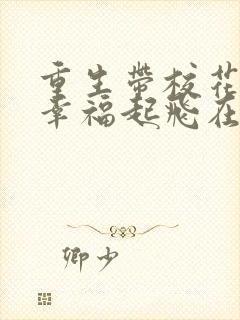 重生带校花
幸福起飞在
卿少